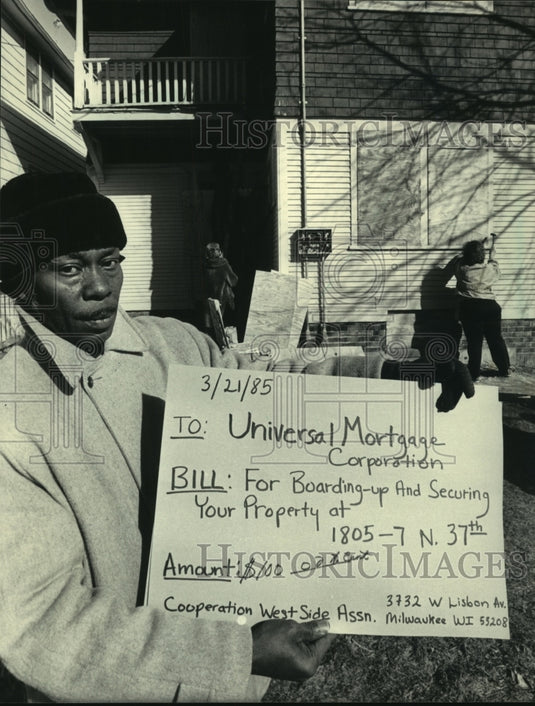 HISTORIC IMAGES
3/21/85
TO: Universal Mortgage
Corporation
BILL: For Boarding-up And Securing
Your Property at
1805-7 N. 37th
Amount: $100
Cooperation West Side Assn. 3732 W Lisbon Av.
Milwaukee WI 53208
HISTORIC IMAGES